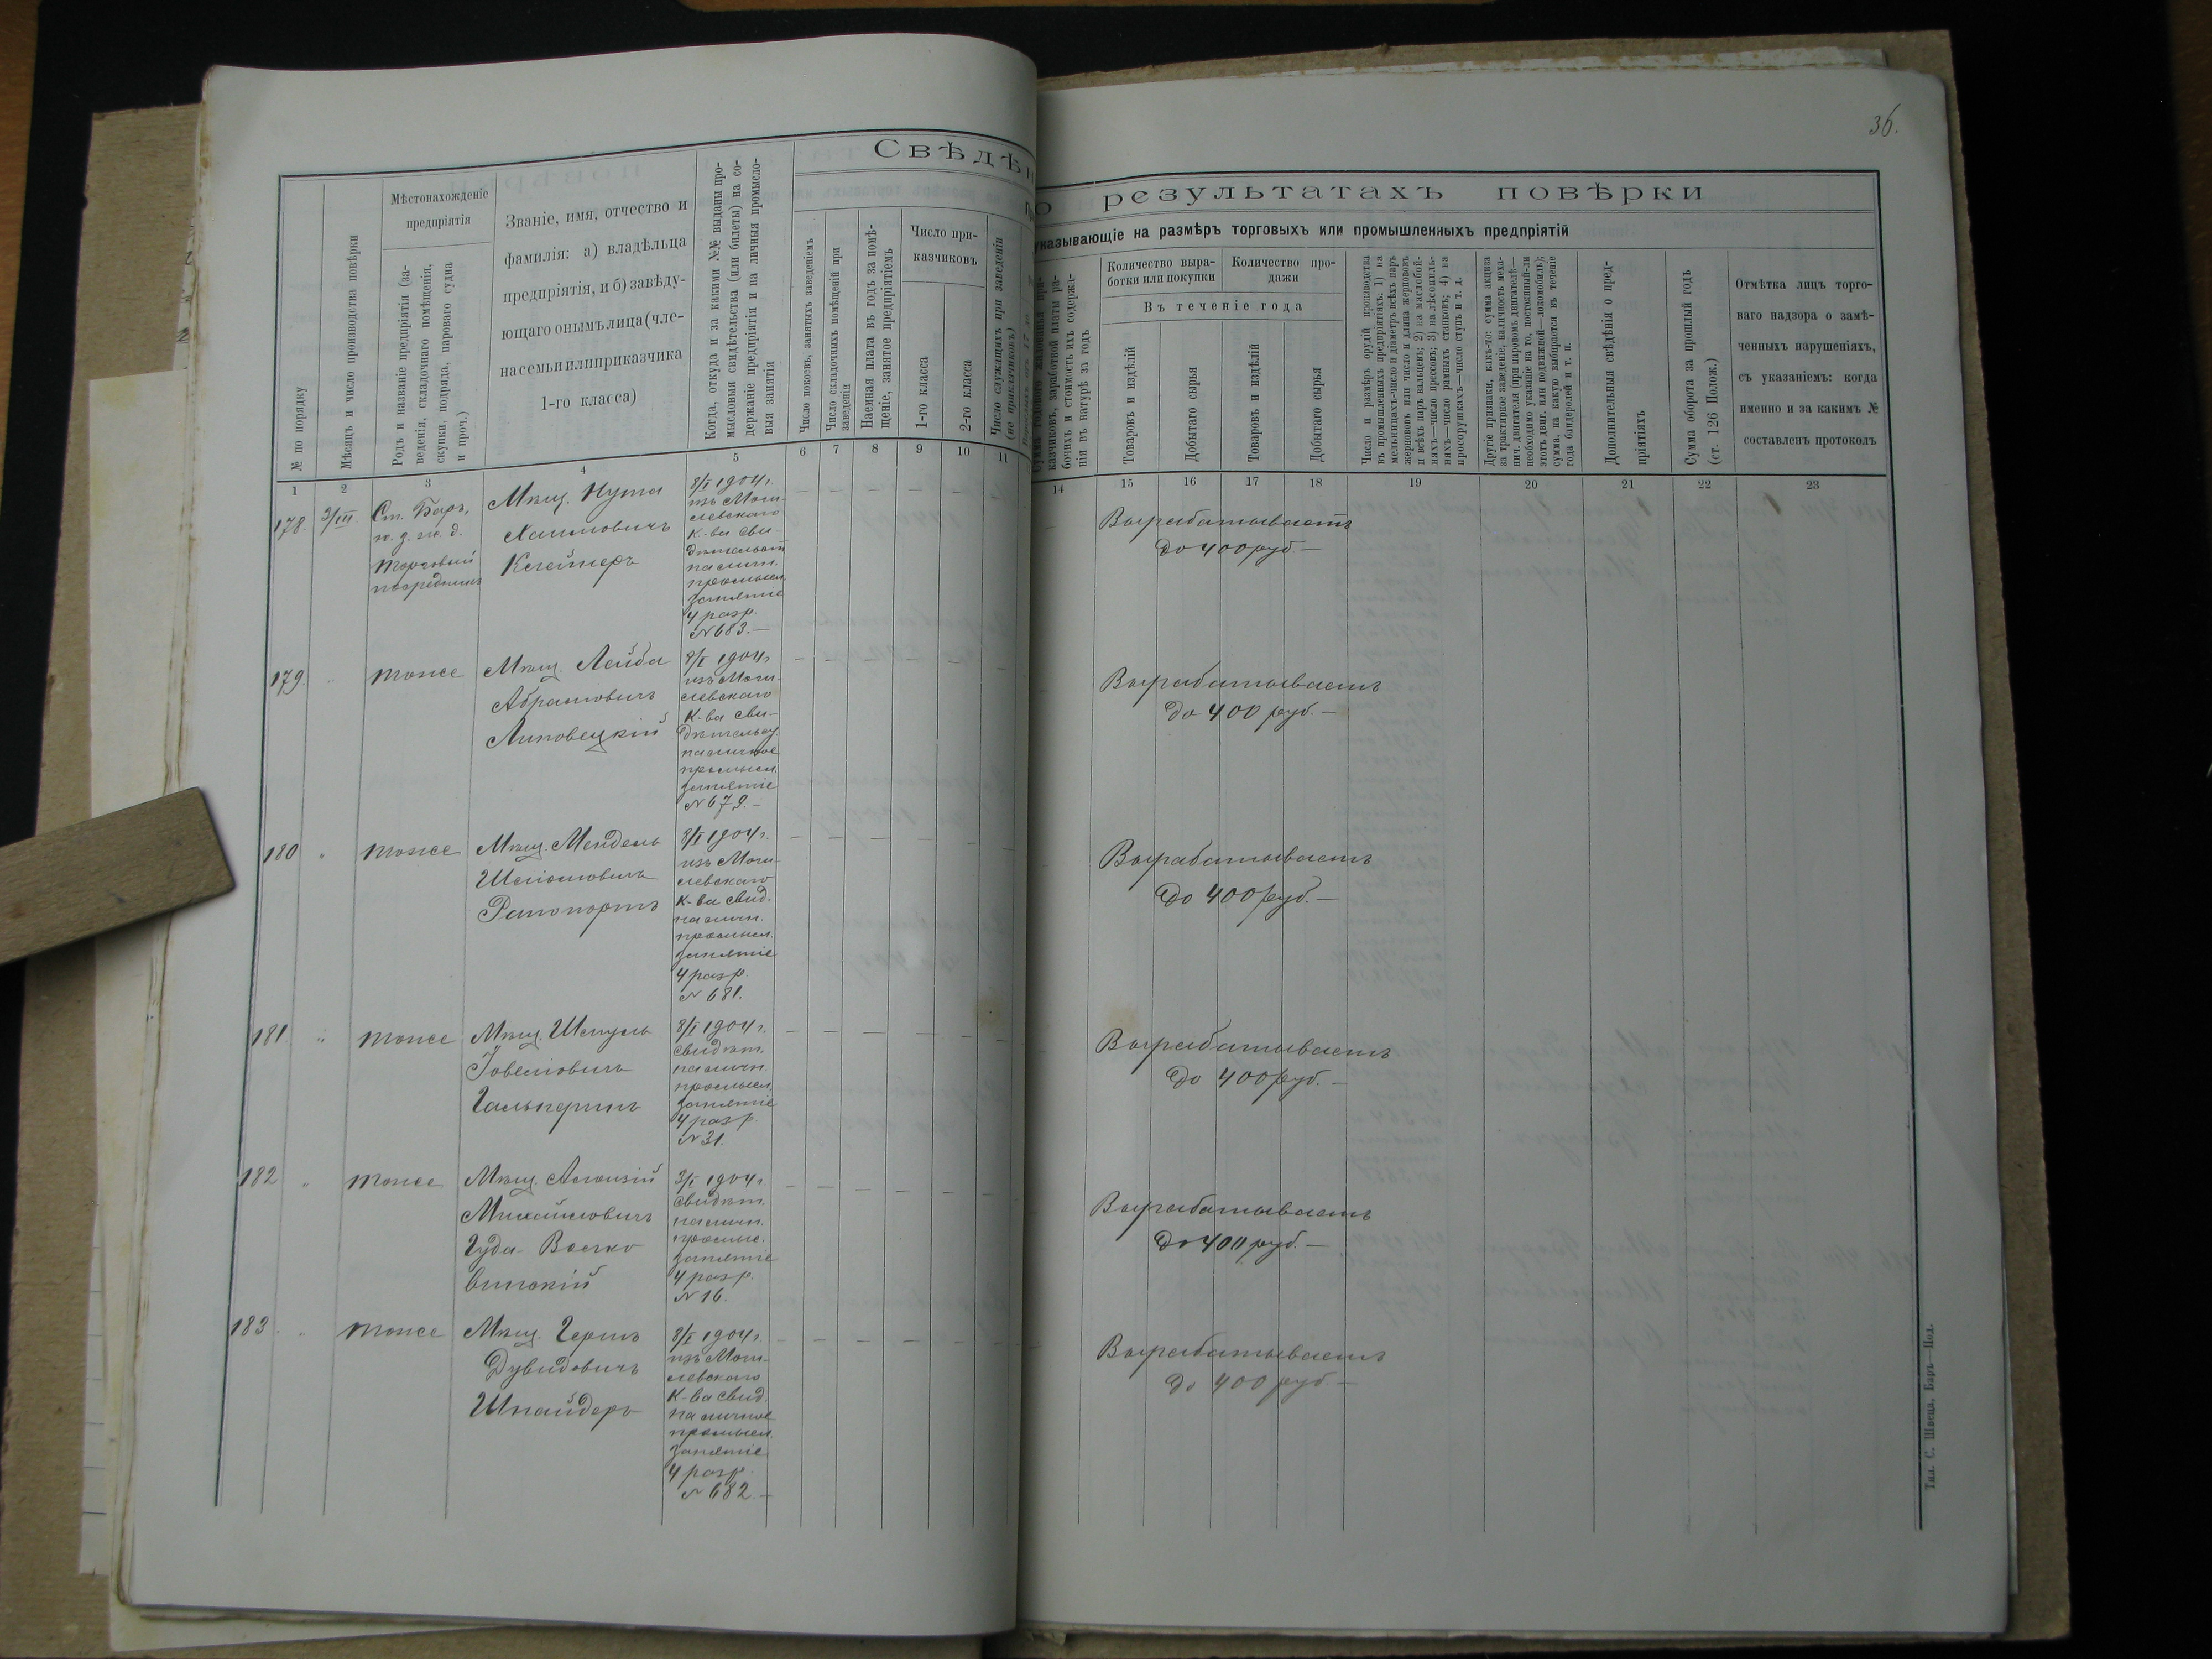 36.
Свѣдѣн
о результатахъ повѣрки
указывающіе на размѣръ торговыхъ или промышленныхъ предпріятій
№ по порядку
Мѣсяцъ и число производства повѣрки
Мѣстонахожденіе
предпріятія
Родъ и названіе предпріятія (за-
веденія, складочнаго помѣщенія,
скупки, подряда, пароваго судна
и проч.)
Званіе, имя, отчество и
фамилія: а) владѣльца
предпріятія, и б) завѣду-
ющаго онымъ лица (чле-
на семьи или приказчика
1-го класса)
Когда, откуда и за какими №№ выданы про-
мысловыя свидѣтельства (или билеты) на со-
держаніе предпріятія и на личныя промысло-
выя занятія
Число покоевъ, занятыхъ заведеніемъ
Число складочныхъ помѣщеній при
заведеніи
Наемная плата въ годъ за помѣ-
щеніе, занятое предпріятіемъ
Число при-
казчиковъ
1-го класса
2-го класса
Число служащихъ при заведеніи
(не приказчиковъ)
казчиковъ, заработной платы ра-
бочихъ и стоимость ихъ содержа-
нія въ натурѣ за годъ
Количество выра-
ботки или покупки
Количество про-
дажи
Въ теченіе года
Товаровъ и издѣлій
Добытаго сырья
Товаровъ и издѣлій
Добытаго сырья
Число и размѣръ орудій производства
въ промышленныхъ предпріятіяхъ: 1) на
мельницахъ—число и діаметръ всѣхъ паръ
жернововъ или число и длина жернововъ
и всѣхъ паръ вальцевъ; 2) на маслобой-
няхъ—число прессовъ; 3) на лѣсопиль-
няхъ—число рамныхъ станковъ; 4) на
просорушкахъ—число ступъ и т. д.
Другіе признаки, какъ-то: сумма акциза
за трактирное заведеніе, наличность меха-
нич. двигателя (при паровомъ двигателѣ—
необходимо указаніе на то, постоянный-ли
этотъ двиг. или подвижной—локомобиль);
сумма, на какую выбирается въ теченіе
года бандеролей и т. п.
Дополнительныя свѣдѣнія о пред-
пріятіяхъ
Сумма оборота за прошлый годъ
(ст. 126 Полож.)
Отмѣтка лицъ торго-
ваго надзора о замѣ-
ченныхъ нарушеніяхъ,
съ указаніемъ: когда
именно и за какимъ №
составленъ протоколъ
1 2 3 4 5 6 7 8 9 10 11
14 15 16 17 18 19 20 21 22 23
178. 3/III.
Ст. Баръ,
ю. з. ж. д.
Торговый
посредникъ
Мѣщ. Нута
Хаимовичъ
Клейнеръ
8/I 1904 г.
изъ Моги-
левскаго
к-ва сви-
дѣтельст.
на личн.
промысл.
занятіе
4 разр.
№ 683.—
Вырабатываетъ
до 400 руб.—
179. " тоже
Мѣщ. Лейба
Абрамовичъ
Липовецкій
8/I 1904 г.
изъ Моги-
левскаго
к-ва сви-
дѣтельст.
на личное
промысл.
занятіе
№ 679.—
Вырабатываетъ
до 400 руб.—
180 " тоже
Мѣщ. Мендель
Шліомовичъ
Рапопортъ
8/I 1904 г.
изъ Моги-
левскаго
к-ва свид.
на личн.
промысл.
занятіе
4 разр.
№ 681.
Вырабатываетъ
до 400 руб.—
181 " тоже
Мѣщ. Шмуль
Іовелювичъ
Гальперинъ
8/I 1904 г.
свидѣт.
на личн.
промысл.
занятіе
4 разр.
№ 31.
Вырабатываетъ
до 400 руб.—
182 " тоже
Мѣщ. Алоизій
Михайловичъ
Гуда-
3/I 1904 г.
свидѣт.
на личн.
промыс.
занятіе
4 разр.
№ 16.
Вырабатываетъ
до 400 руб.—
183. " тоже
Мѣщ. Гершъ
Дувидовичъ
Шнайдеръ
8/I 1904 г.
изъ Моги-
левскаго
к-ва свид.
на личное
промысл.
занятіе
4 разр.
№ 682.—
Вырабатываетъ
до 400 руб.—
Тип. С. Швеца, Баръ—Под.